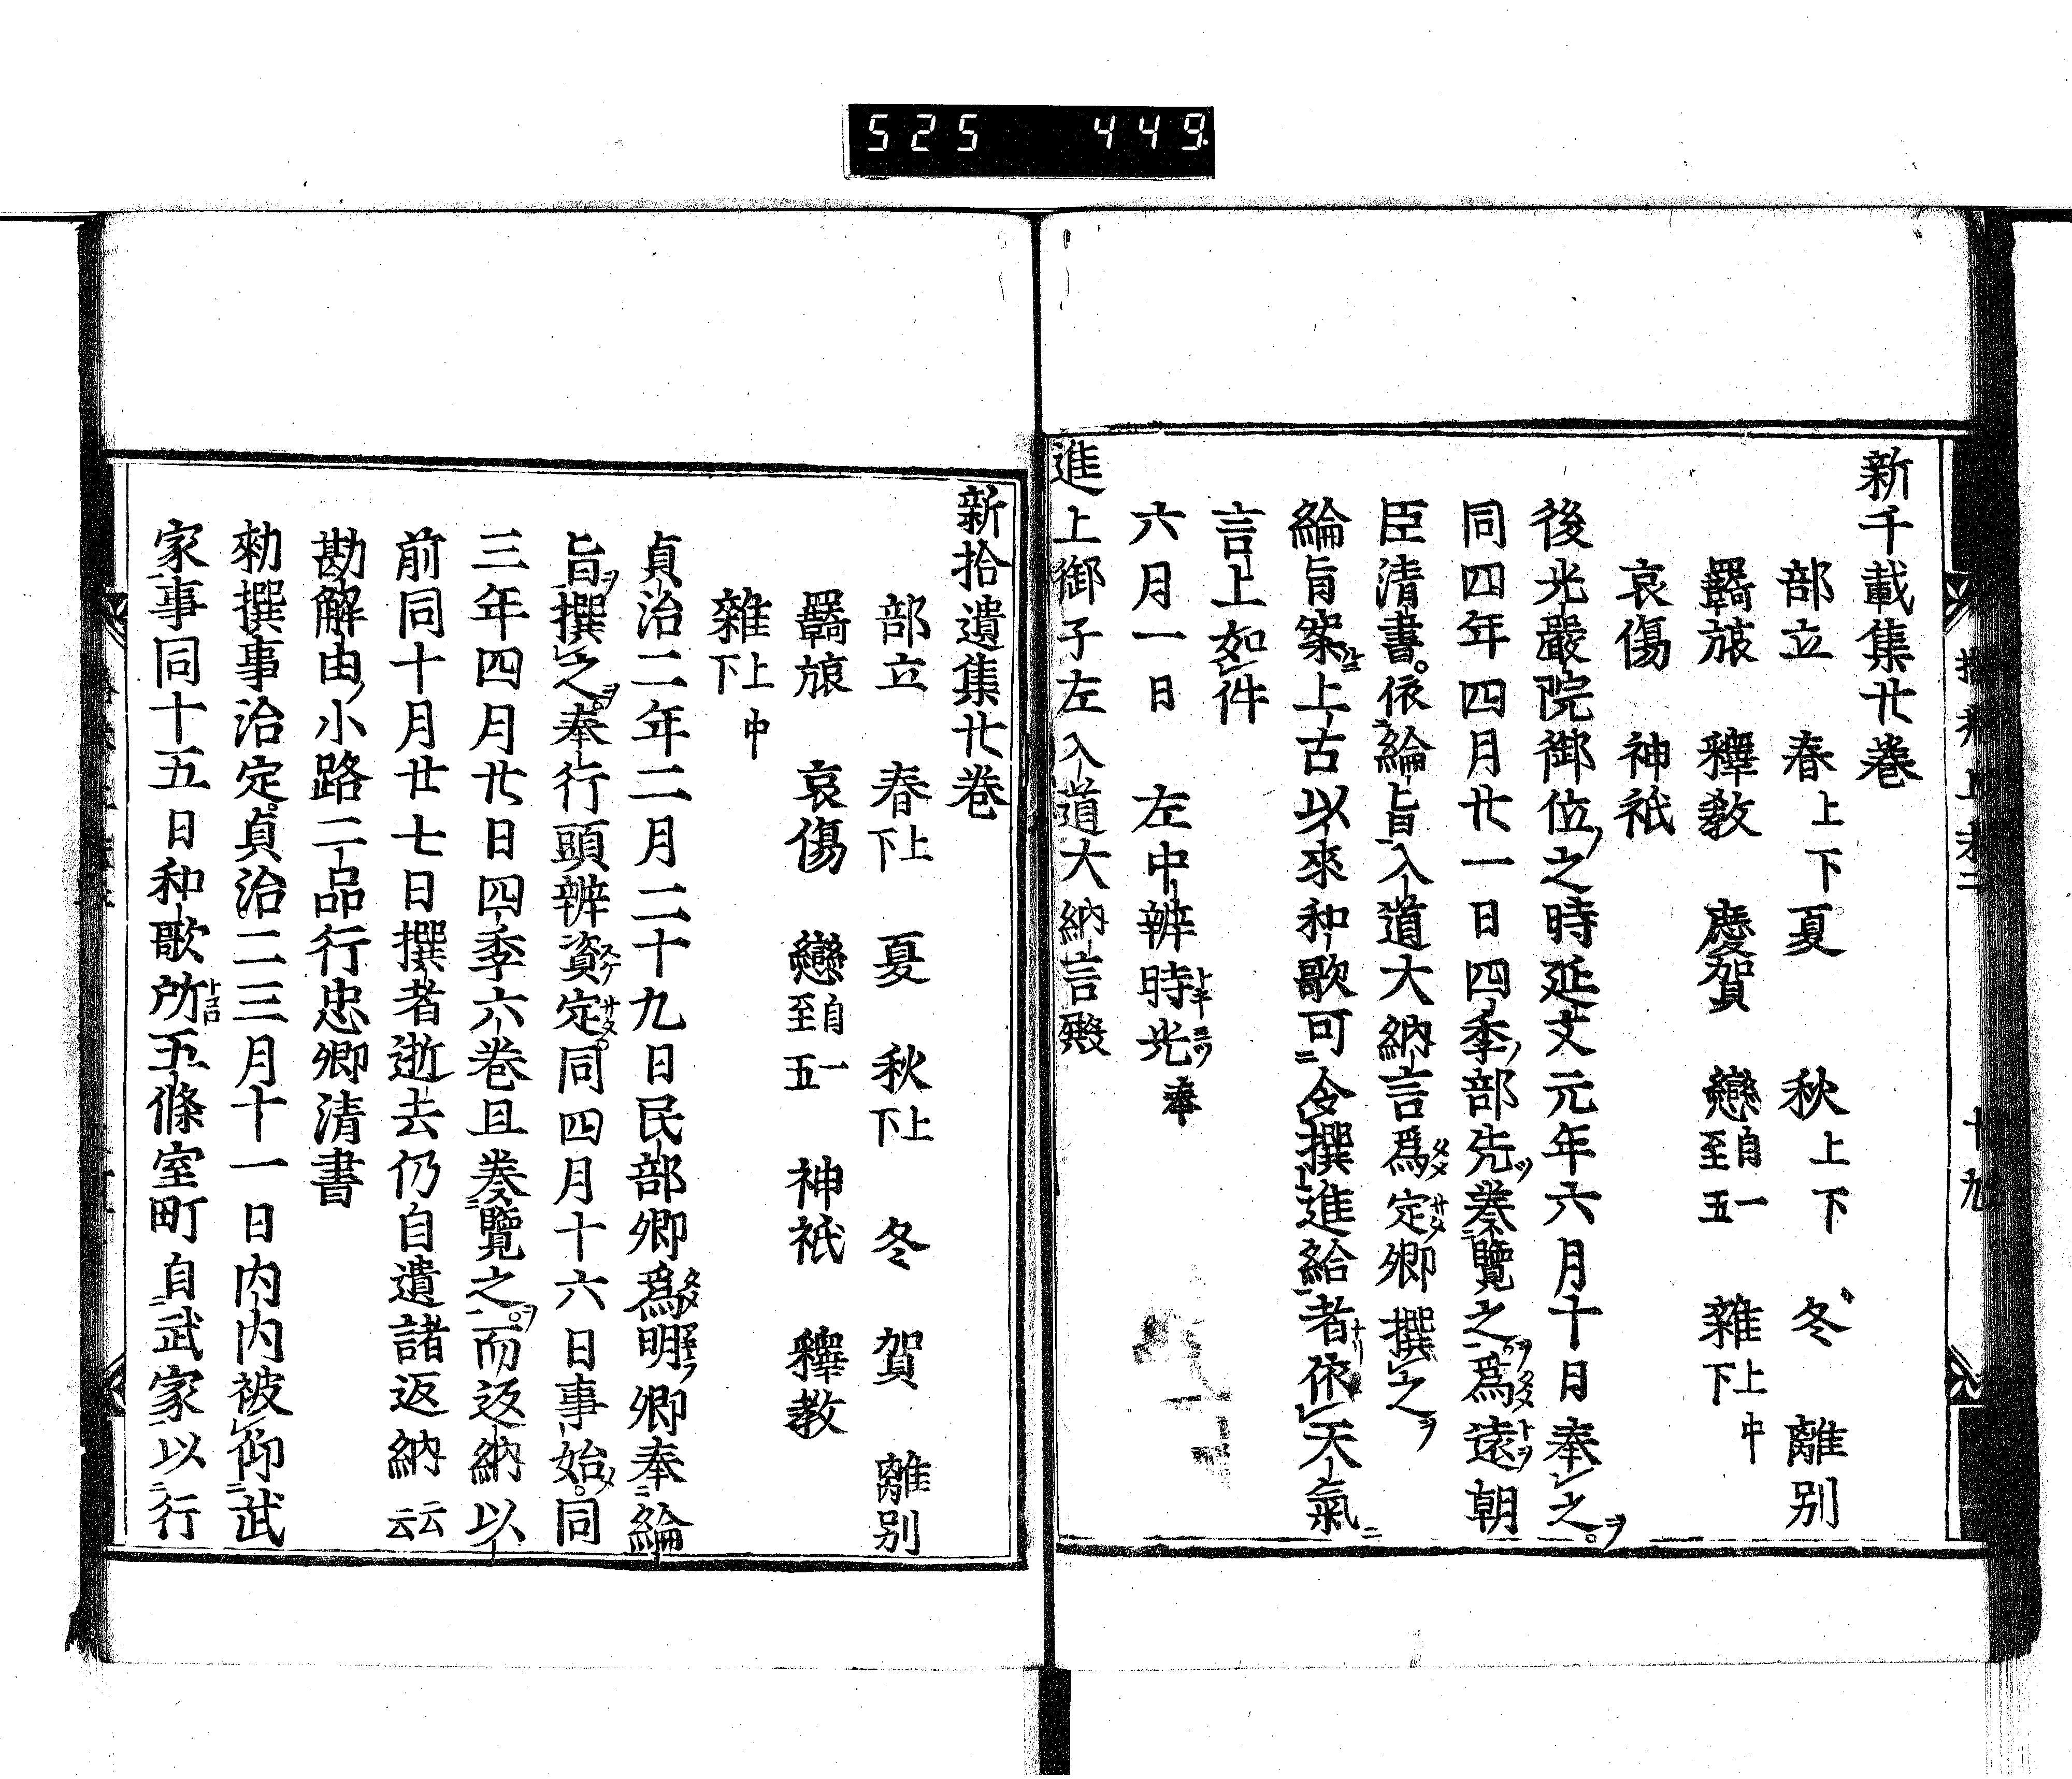 525 449
新千載集廿巻
部立 春上下 夏 秋上下 冬 離別
羇旅 釋教 慶賀 戀自一至五 雜上中下
哀傷 神祇
後光嚴院御位ノ之時延文元年六月十日奉之ヲ
同四年四月廿一日四季ノ部先ツ奏覽之ヲ爲遠朝
臣清書依綸旨入道大納言爲定卿撰之ヲ
綸旨案上古以來和歌可令撰進給者依天氣
言上如件
六月一日 左中辨時光奉
進上御子左入道大納言殿
新拾遺集廿巻
部立 春上下 夏 秋上下 冬 賀 離別
羇旅 哀傷 戀自一至五 神祇 釋教
雜上中下
貞治二年二月二十九日民部卿爲明卿奉綸
旨ヲ撰之ヲ奉行頭辨資定同四月十六日事始同
三年四月廿日四季六巻且奏覽之ヲ而返納以
前同十月廿七日撰者逝去仍自遺諸返納云云
勘解由ノ小路二品行忠卿清書
勅撰事治定貞治二三月十一日内内被仰武
家事同十五日和歌所五條室町自武家以行